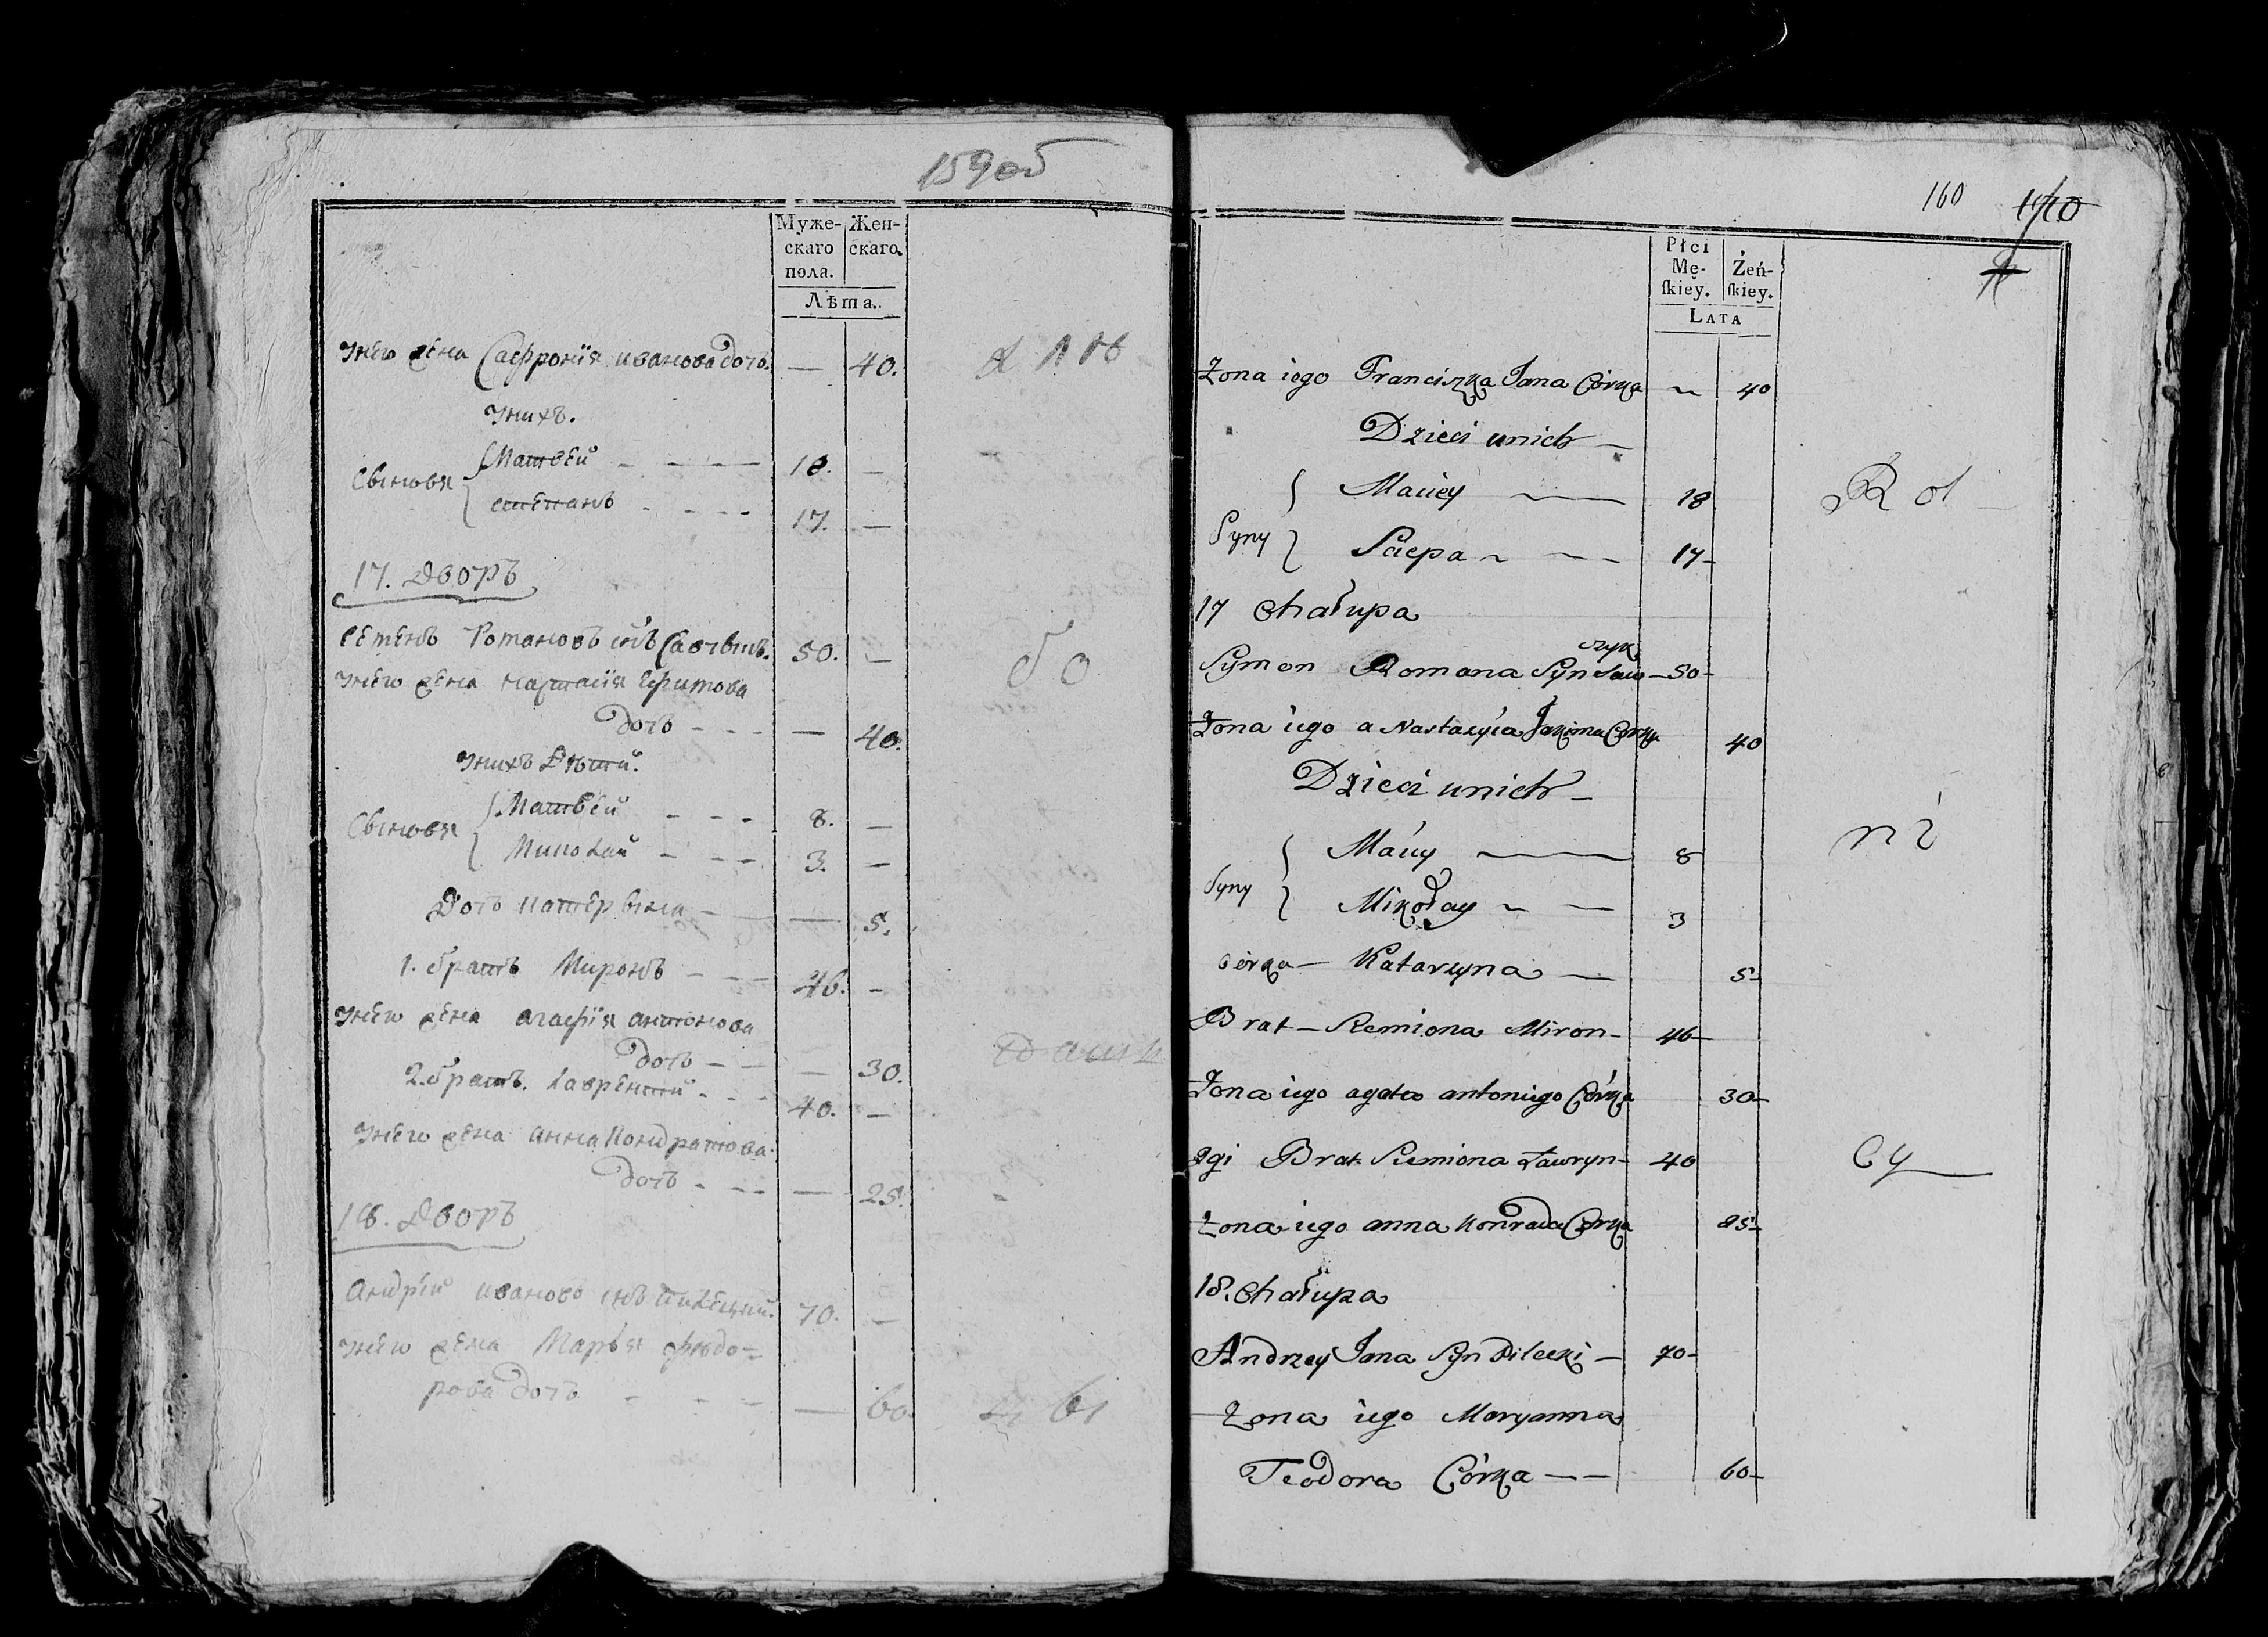 159об
Муже-
скаго
пола.
Жен-
скаго.
Лѣта.
У него жена Сафронія иванова дочь. — 40.
У нихъ.
Сыновя
Матвѣй - - — 18. —
степанъ - - - - 17. —
17. Дворъ
Семенъ Романовъ снъ 50. —
бо
У него жена настасія Ефимова
дочь - - - — 40.
У нихъ дѣти.
Сыновя
Матвѣй - - - 8. —
Николай - - - 3. —
Дочь катерѣина - — 5.
1. братъ Миронъ - - - 46. -
У него жена агафія антонова
дочь - - — 30.
2. братъ. лаврентий - - - 40. —
У него жена анна кондратова
дочь - - - — 25.
18. Дворъ
Андрѣй ивановъ снъ пилецкий. 70. —
У него жена Марья фиодо-
рова дочь - - - — 60.
160
Płci
Mę-
ſkiey.
Żeń-
ſkiey.
LATA
Żona iego Franciszka Jana Córka ~ 40
Dzieci unich —
Syny
Maciey — 18
Sciepa ~ — 17-
Rol
17 Chałupa
Symon Romana Syn Saw —50-
czyk
Żona iego a Nastazyia Jakima Corka 40
Dzieci unich —
Syny
Maciy — 8
Mikołay ~ — 3
ni
Córka — Katarzyna — 5-
Brat — Siemiona Miron — 46—
Żona iego agata antoniego Córka 30—
2gi Brat Siemiona Ławryn — 40
cy
Żona iego anna Konrada Corka 25-
18. Chałupa
Andrzey Jana Syn Pilecki — 70-
Żona iego Maryanna
Teodora Córka — — 60—